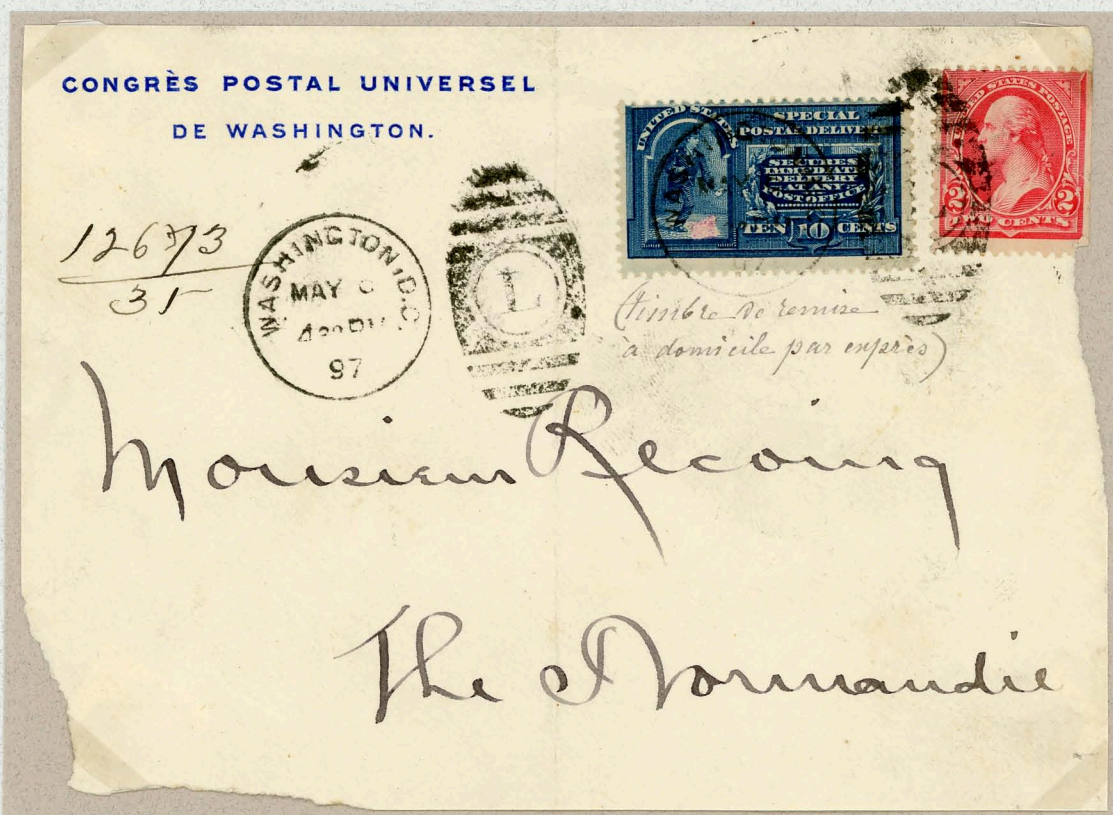 CONGRÈS POSTAL UNIVERSEL
DE WASHINGTON.
UNITED STATES
SPECIAL
POSTAL DELIVERY
SECURES
IMMEDIATE
DELIVERY
AT ANY
POST OFFICE
TEN 10 CENTS
UNITED STATES POSTAGE
2 2
TWO CENTS
12673
31
WASHINGTON, D.C.
MAY 6
4 PM
97
L
(timbre de remise
à domicile par exprès)
Monsieur Recoing
The Normandie